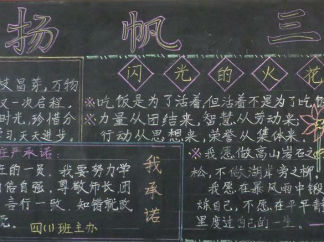 扬帆三
枝昌芽,万物
又一次启程,
时光,珍惜分
习,天天进步,
庄严承诺:
生的一员,我要努力学
自信自强,尊敬师长,团
,言行一致,知错就改
我承诺
四(1)班主办
闪光的火花
※吃饭是为了活着,但活着不是为了吃饭
※力量从团结来,智慧从劳动来,
行动从思想来,荣誉从集体来。
※我愿做高山岩石之
松,不做湖岸旁之柳
我愿在暴风雨中锻
炼自己,不愿在平平静静
里度过自己的一生。